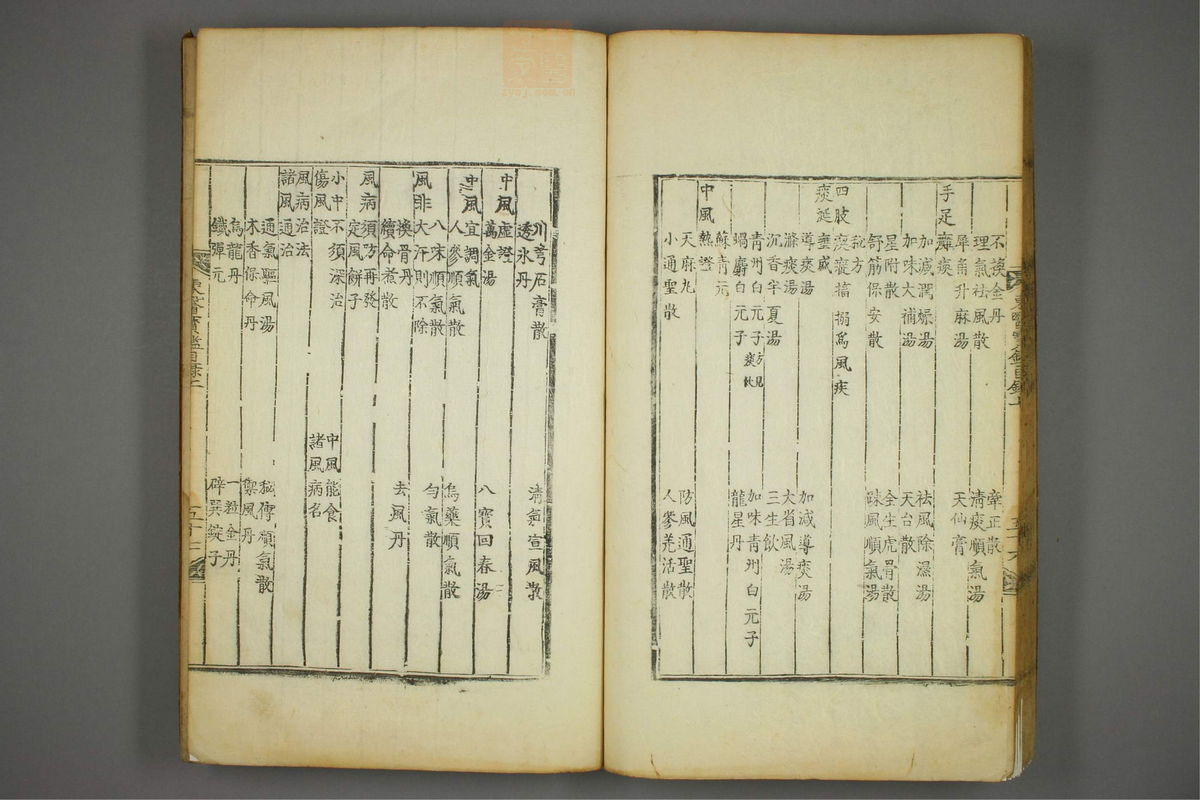 不換金丹
牽正散
理氣祛風散
清痰順氣湯
犀角升麻湯
天仙膏
手足癱瘓
加減潤燥湯
祛風除濕湯
加味大補湯
天台散
星附散
全生虎骨散
舒筋保安散
踈風順氣湯
敍方
四肢瘈瘲搐搦爲風疾
痰涎壅盛
導痰湯
加減導痰湯
滌痰湯
大省風湯
沉香半夏湯
三生飮
青州白元子方見痰飮
加味青州白元子
蝎麝白元子
龍星丹
蘇青元
中風熱證
天麻丸
防風通聖散
小通聖散
人參羌活散
川芎石膏散
清氣宣風散
透氷丹
中風虛證
萬金湯
八寶回春湯
中風宜調氣
人參順氣散
烏藥順氣散
八味順氣散
勻氣散
風非大汗則不除
換骨丹
去風丹
續命煮散
風病須防再發
定風餠子
小中不須深治
中風能食
傷風證
諸風病名
風病治法
諸風通治
通氣驅風湯
秘傳順氣散
木香保命丹
禦風丹
烏龍丹
一粒金丹
鐵彈元
辟巽錠子
東醫寶鑑目錄上